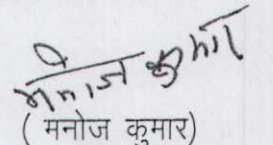 मनोज कुमार
( मनोज कुमार)